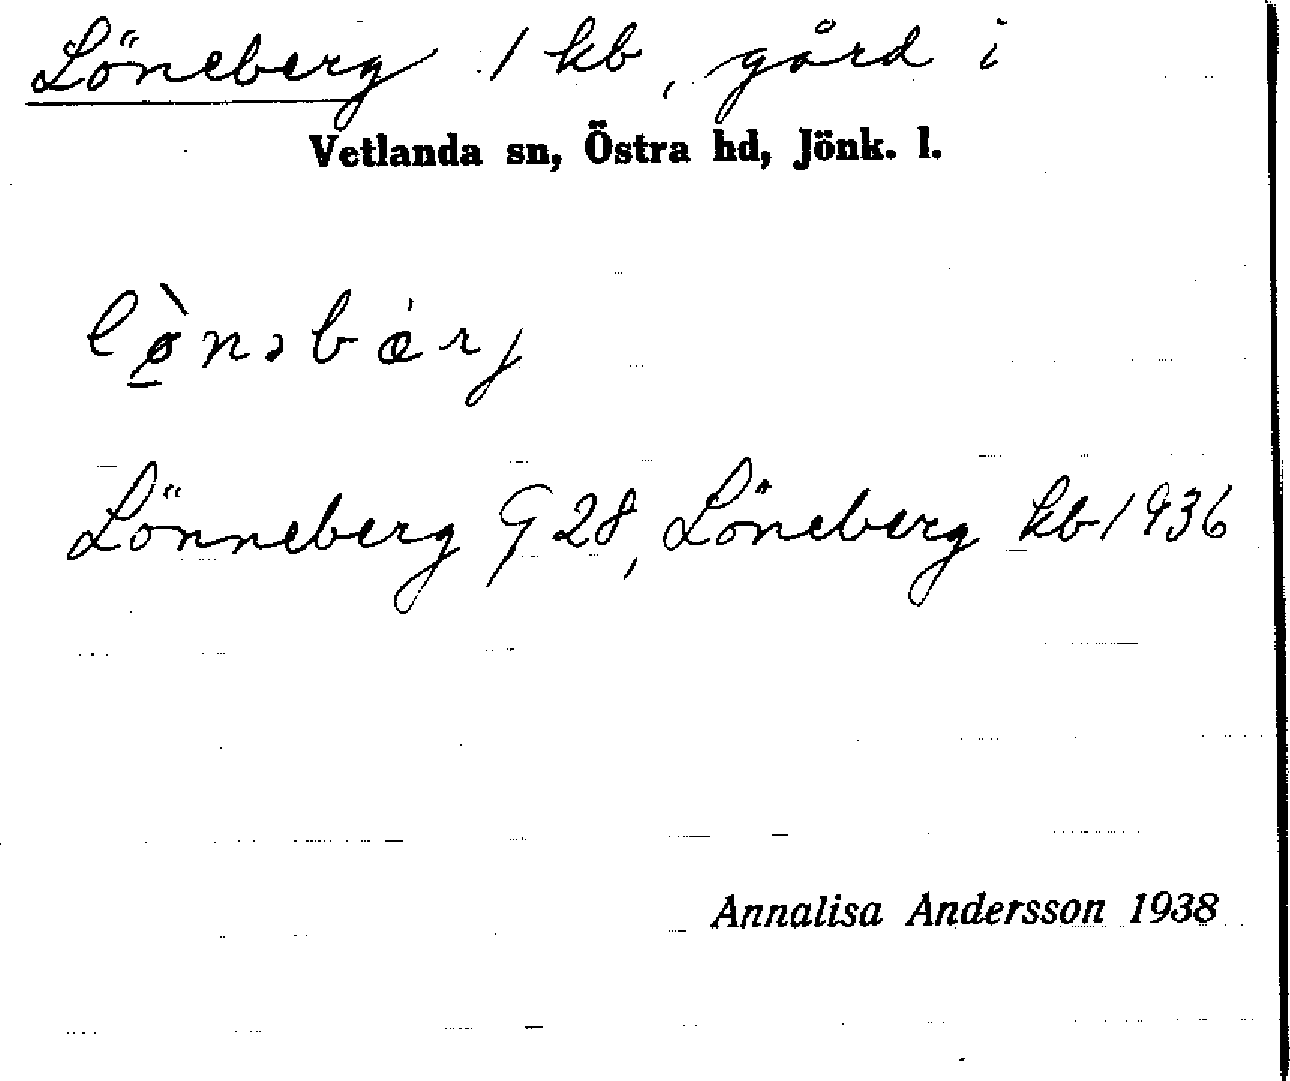 Löneberg 1 kb, gård i
Vetlanda sn, Östra hd, Jönk. l.
lø̀nəbærj
Lönneberg G 28, Löneberg kb 1936
Annalisa Andersson 1938